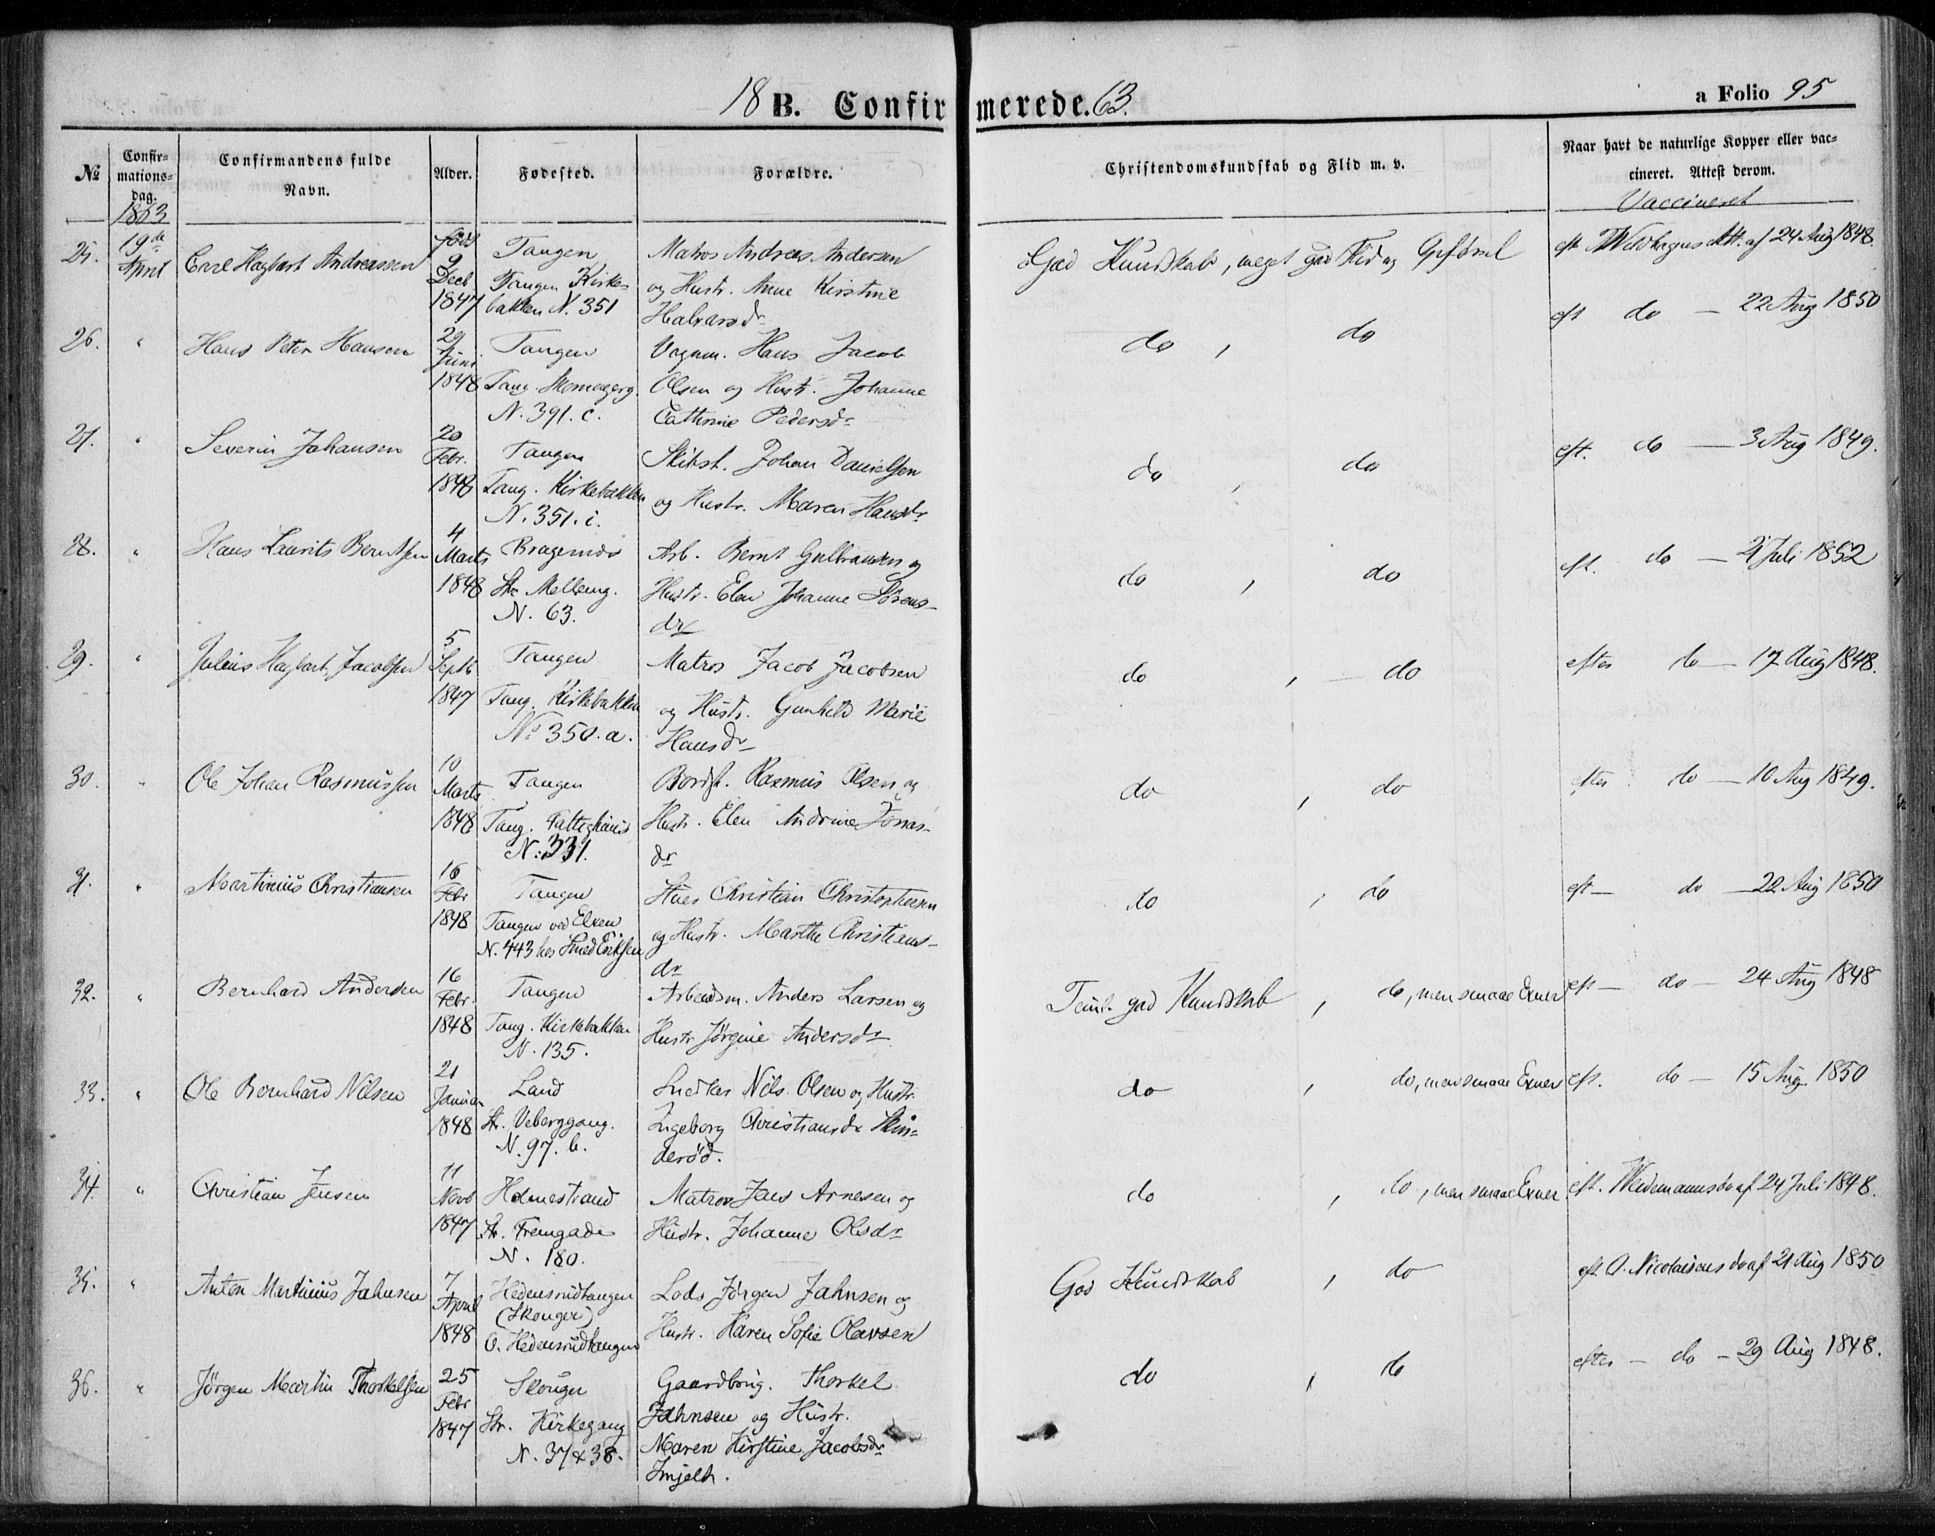 18 B. Confirmerede. 63.
a Folio 95
№ Confirmationsdag. Confirmandens fulde Navn. Alder. Fødested. Forældre. Christendomskundskab og Flid m. v. Naar havt de naturlige Kopper eller vaccineret. Attest derom.
1863
Vaccineret
25. 19de April Carl Hagbart Andreassen født 9 Decb 1847 Tangen
Tangen Kirkebakken N. 351
Matros Andreas Andersen
og Hustr. Anne Kirstine
Halvorsdr
God Kundskab, meget god Flid og Opførsel
eft Att. af 24 Aug 1848.
26. " Hans Peter Hansen 29 Juni 1848 Tangen
N. 391. c.
Vognm. Hans Jacob
Olsen og Hustr. Johanne
Cathrine Pedersdr
do , do
eft do — 22 Aug 1850
27. " Severin Johansen 20 Febr. 1848 Tangen
Tang. Kirkebakken
N. 351. i.
Johan Danielsen
og Hustr. Maren Hansdr
do , do
eft. do — 3 Aug 1849.
28. " Hans Laurits Berntsen 4 Marts 1848 Bragernes
Str. Mellemg.
N. 63.
Arb. Bernt Gulbransen og
Hustr. Elen Johanne Sørens-
dr
do , do
eft. do — Juli 1852
29. " Julius Hagbart Jacobsen 5 Septb 1847 Tangen
Tang. Kirkebakken
No 350. a.
Matros Jacob Jacobsen
og Hustr. Gunhild Marie
Hansdr
do , do
efter do — 17 Aug 1848.
30. " Ole Johan Rasmussen 10 Marts 1848 Tangen
Tang. Fattighuus
N. 331.
Rasmus Olsen og
Hustr. Elen Andrine Jonas-
dr
do , do
efter do — 10 Aug 1849.
31. " Martinius Christiansen 16 Febr 1848 Tangen
Tangen ved Elven
N. 443 hos Smed Eriksen
Christian Christophersen
og Hustr. Marthe Christians-
dr
do , do
eft — do — 22 Aug 1850
32. " Bernhard Andersen 16 Febr. 1848 Tangen
Tang. Kirkebakken
N. 135.
Arbeidsm. Anders Larsen og
Hustr Jørgine Andersdr
Teml. god Kundskab , do, men smaae Evner
eft — do — 24 Aug 1848
33. " Ole Bernhard Nilsen 21 Januar 1848 Land
Str. Veberggang.
N. 97. b.
Snedker Nils Olsen og Hustr.
Ingeborg Christiansdr Skin-
derød.
do , do, men smaae Evner
eft. do — 15 Aug. 1850
34. " Christian Jensen 11 Novb 1847 Holmestrand
Str. Tremgade
N. 180.
Matros Jens Arnesen og
Hustr. Johanne Olsdr
do , do, men smaae Evner
eft. Weidemanns do af 24 Juli 1848.
35. " Anton Martinius Jahnsen 7 April 1848 Hedensrudtangen
(Skouger)
O. Hedensrudtangen
Lods Jørgen Jahnsen og
Hustr. Karen Sofie Olavsen
God Kundskab , do
eft O. Nicolaisens do af 21 Aug 1850
36. " Jørgen Martin Thorkelsen 25 Febr 1847 Skouger
Str. Kirkegang
N. 37 & 38.
Gaardbrug. Thorkel
Jahnsen og Hustr.
Maren Kirstine Jacobsdr
do , do
efter — do — 29 Aug 1848.